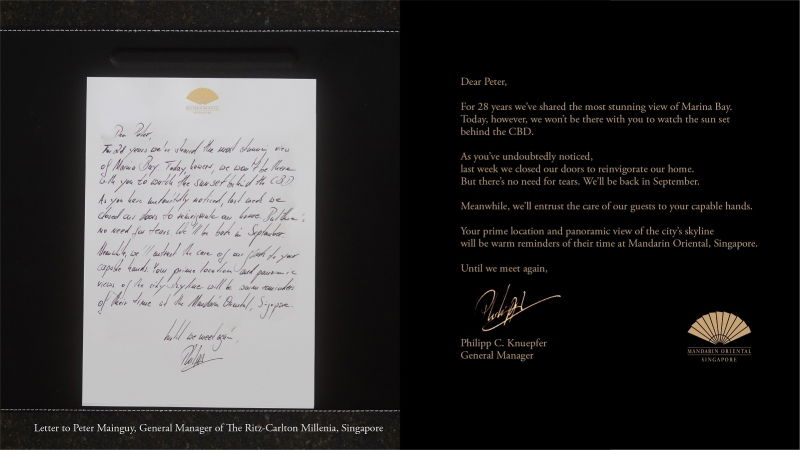 MANDARIN ORIENTAL
Dear Peter,
For 28 years we've shared the most stunning view
of Marina Bay. Today, however, we won't be there
with you to watch the sun set behind the CBD.
As you have undoubtedly noticed, last week we
closed our doors to reinvigorate our home. But there's
no need for tears. We'll be back in September.
Meanwhile, we'll entrust the care of our guests to your
capable hands. Your prime location and panoramic
views of the city skyline will be warm reminders
of their time at the Mandarin Oriental, Singapore.
Until we meet again,
Philipp
Letter to Peter Mainguy, General Manager of The Ritz-Carlton Millenia, Singapore
Dear Peter,
For 28 years we've shared the most stunning view of Marina Bay.
Today, however, we won't be there with you to watch the sun set
behind the CBD.
As you've undoubtedly noticed,
last week we closed our doors to reinvigorate our home.
But there's no need for tears. We'll be back in September.
Meanwhile, we'll entrust the care of our guests to your capable hands.
Your prime location and panoramic view of the city's skyline
will be warm reminders of their time at Mandarin Oriental, Singapore.
Until we meet again,
Philipp
Philipp C. Knuepfer
General Manager
MANDARIN ORIENTAL
SINGAPORE